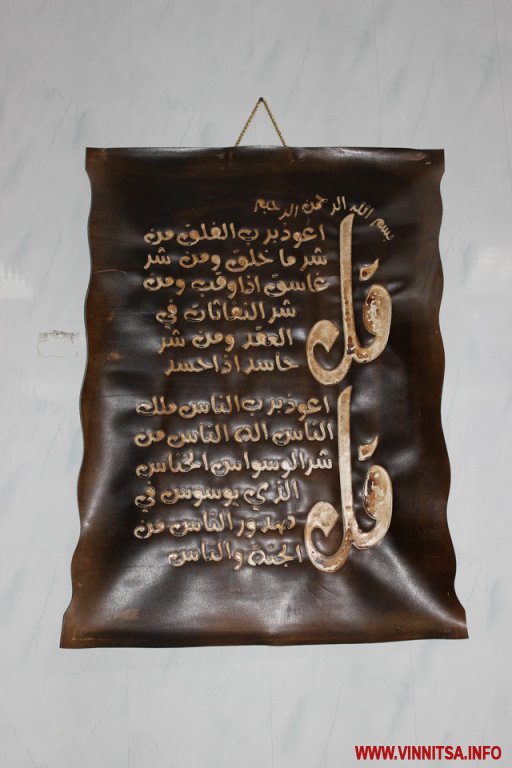 بسم الله الرحمن الرحيم
قل
اعوذ برب الفلق من
شر ما خلق ومن شر
غاسق اذا وقب ومن
شر النفاثات في
العقد ومن شر
حاسد اذا حسد
قل
اعوذ برب الناس ملك
الناس اله الناس من
شر الوسواس الخناس
الذي يوسوس في
صدور الناس من
الجنة والناس
WWW.VINNITSA.INFO